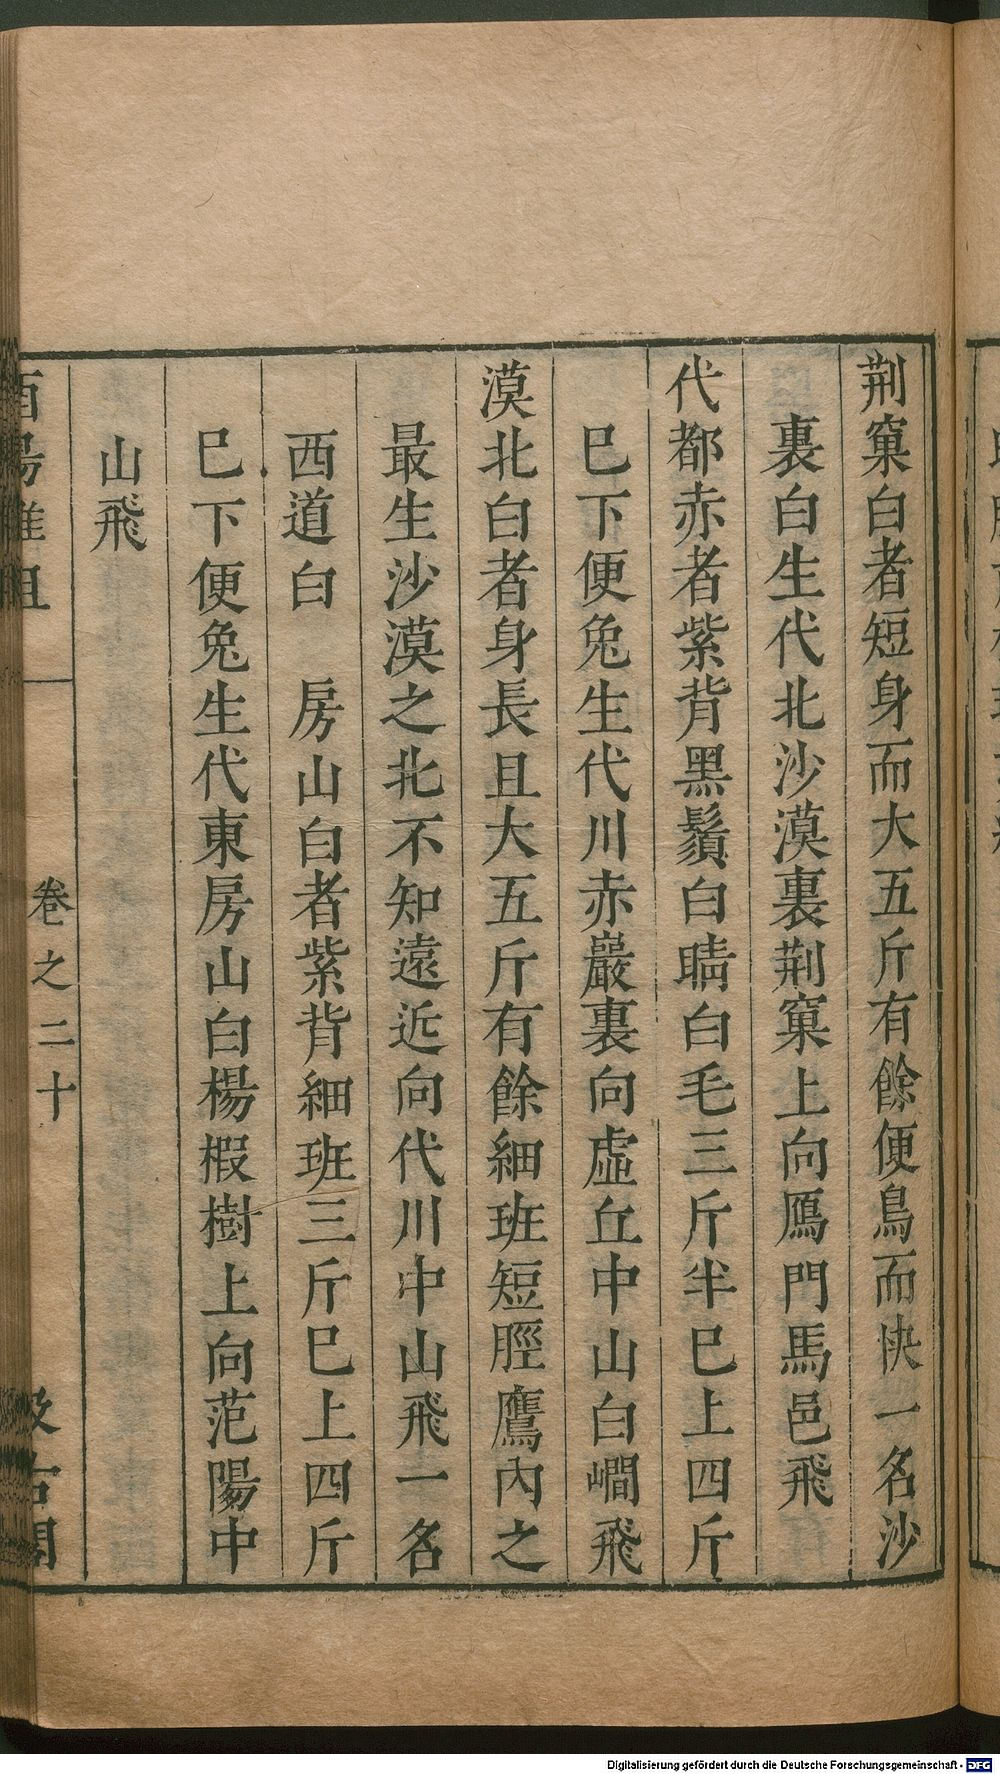 荆窠白者短身而大五斤有餘便鳥而快一名沙
裏白生代北沙漠裏荆窠上向鴈門馬邑飛
代都赤者紫背黑鬚白睛白毛三斤半巳上四斤
巳下便兔生代川赤巖裏向虛丘中山白㵎飛
漠北白者身長且大五斤有餘細班短脛鷹內之
最生沙漠之北不知遠近向代川中山飛一名
西道白 房山白者紫背細班三斤巳上四斤
巳下便兔生代東房山白楊椵樹上向范陽中
山飛
酉陽雜俎 卷之二十 汲古閣
Digitalisierung gefördert durch die Deutsche Forschungsgemeinschaft - DFG